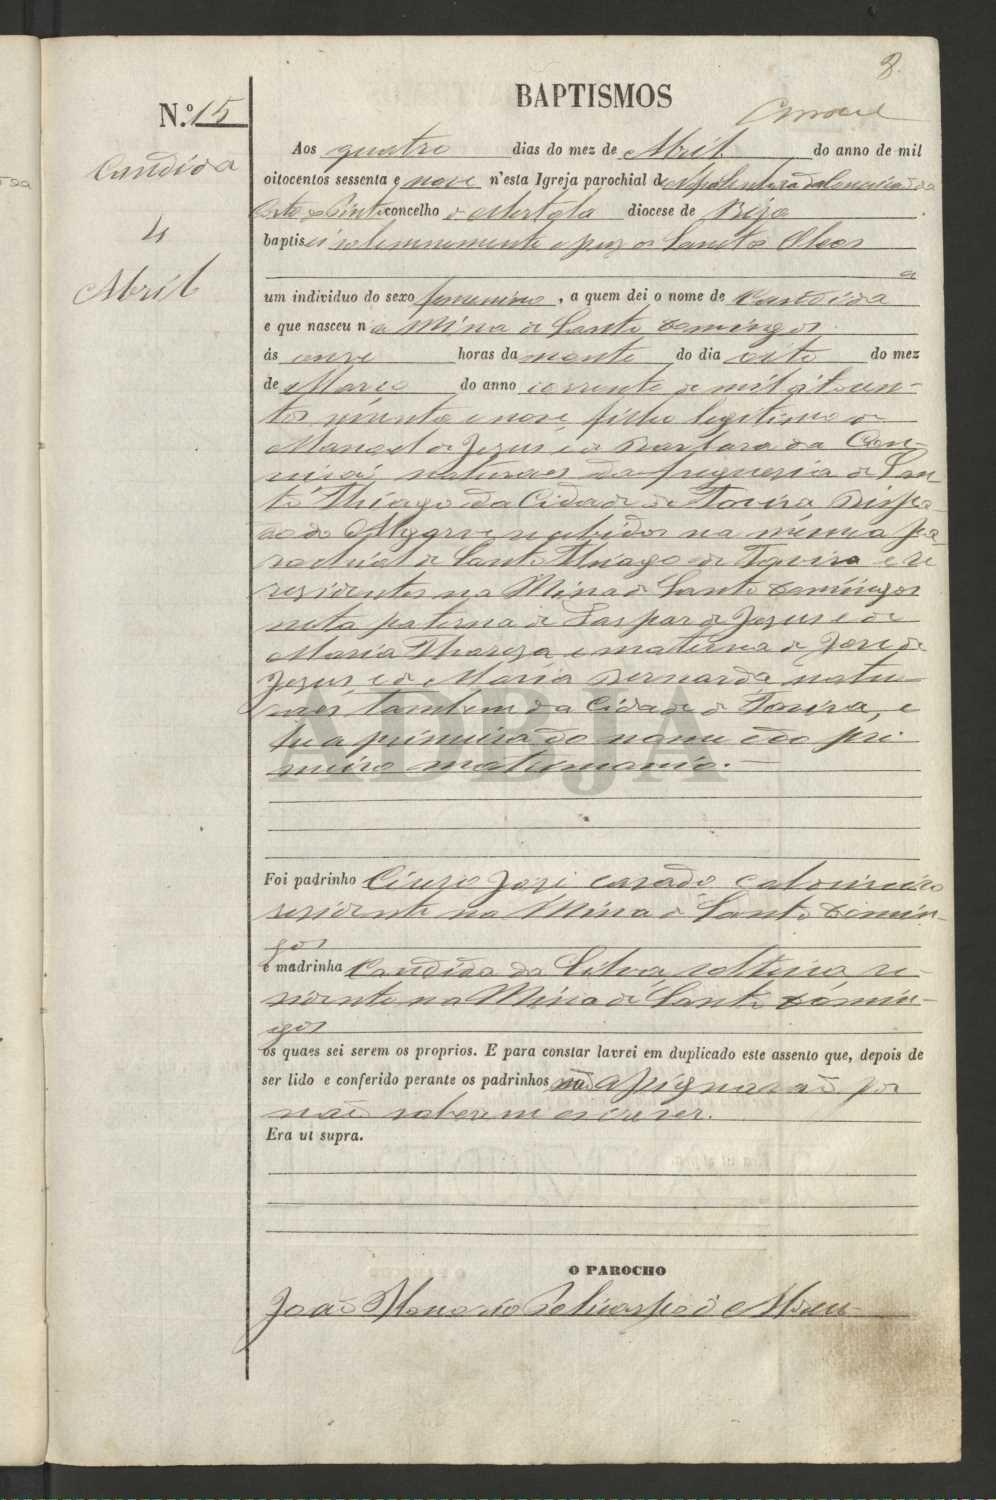 8.
BAPTISMOS
N.º 15
Candida
4
Abril
Aos quatro dias do mez de Abril do anno de mil
oitocentos sessenta e nove n'esta Igreja parochial de Nossa Senhora da Conceição da
Corte do Pinto concelho de Mertola diocese de Beja
baptisei solemnemente e puz os Santos Oleos
a
um individuo do sexo femenino, a quem dei o nome de Candida
e que nasceu na Mina de Santo Domingos
ás onze horas da noute do dia oito do mez
de Março do anno corrente de mil oitocen-
tos secenta e nove, filha legitima de
Manoel de Jezus e de Barbara da Con-
ceicaõ naturaes da freguesia de San
to Thiago da Cidade de Tavira Bispa-
do do Algarve recebidos na mesma pa-
rochial de Santo Thiago de Tavira e re
rezidentes na Mina de Santo Domingos
neta paterna de Gaspar de Jezus e de
Maria Thereza e materna de Joze de
Jezus e de Maria Bernarda natu
raes tambem da Cidade de Tavira, e
he a primeira do nome e do pri
meiro matrimonio.
Foi padrinho José cazado
rezidente na Mina de Santo Domin-
gos
e madrinha Candida da Silva solteira re-
zidente na Mina de Santo Domin-
gos
os quaes sei serem os proprios. E para constar lavrei em duplicado este assento que, depois de
ser lido e conferido perante os padrinhos não assignaraõ por
naõ saberem escrever.
Era ut supra.
O PAROCHO
João Policarpo de
ADBJA